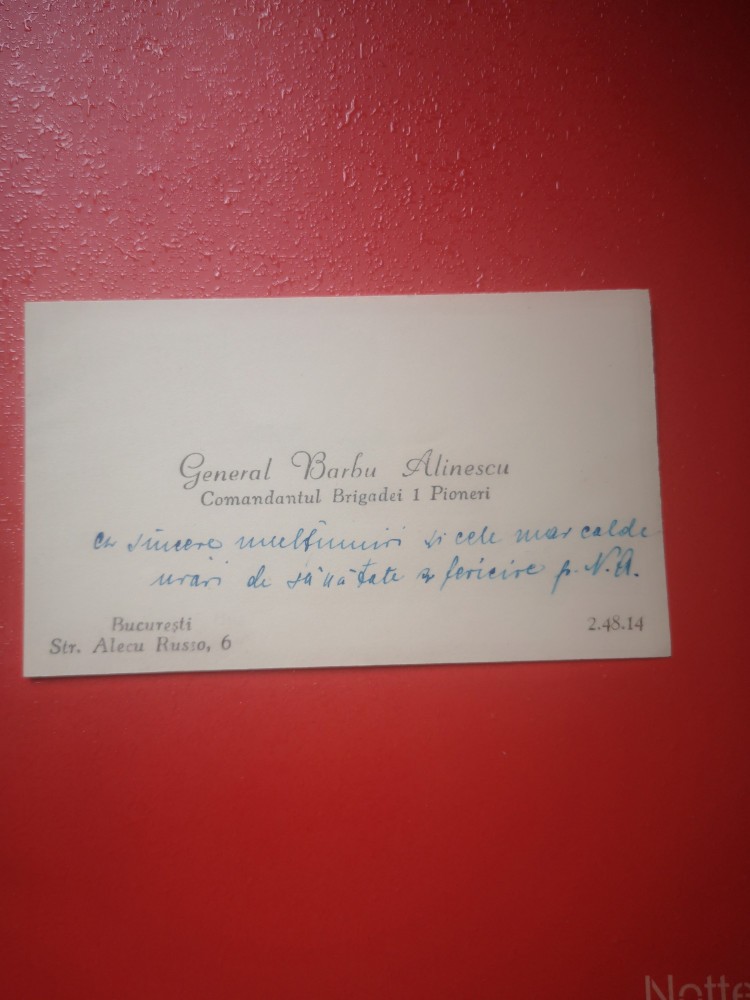 General Barbu Alinescu
Comandantul Brigadei 1 Pioneri
cu sincere mulțumiri și cele mai calde
urări de sănătate și fericire p. N.A.
București
Str. Alecu Russo, 6
2.48.14
Notte